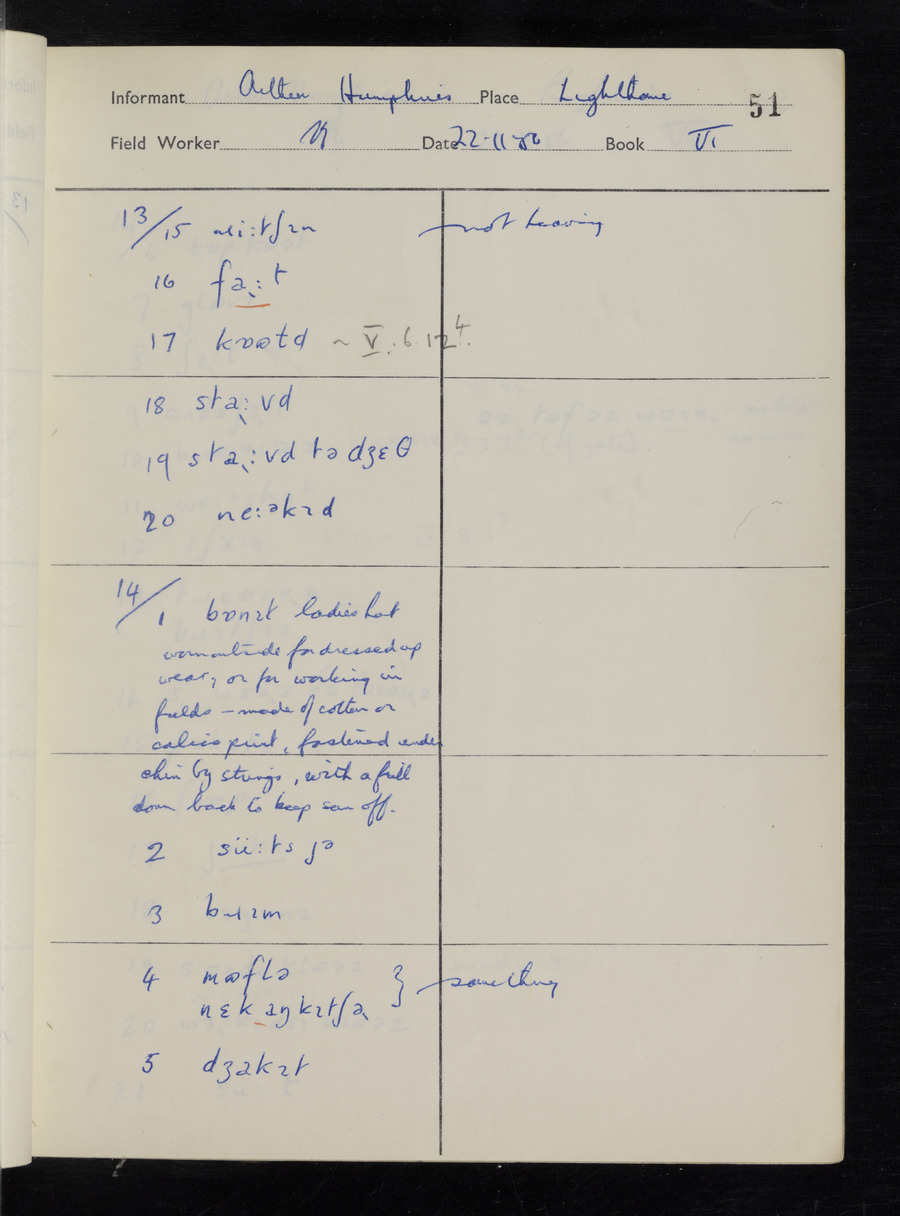 Informant Humphries Place Lighthorne 51
Field Worker Date 22-11-56 Book VI
13/15 not heaving
16 fa̠:t
17 ~ V.6.12⁴
18 sta̠:vd
19 sta̠:vd tə dʒɛθ
20 ne:əkɪd
14/1 bɒnɪt ladies hat
for dressed up
wear, or for working in
fields – made of cotton or
calico print, fastened under
chin by strings, with a frill
down back to keep sun off.
2 sɪɪ:ts jə
3
4 mʊflə
nɛk aŋkɪtʃə } something
5 dʒakɪt